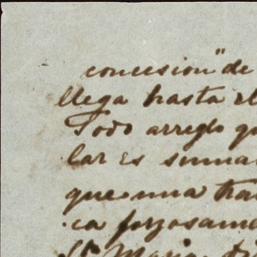 concesion" de
llega hasta el
Todo arreglo q
lar es suma
que una tra
ca forzosame
Sta Maria.